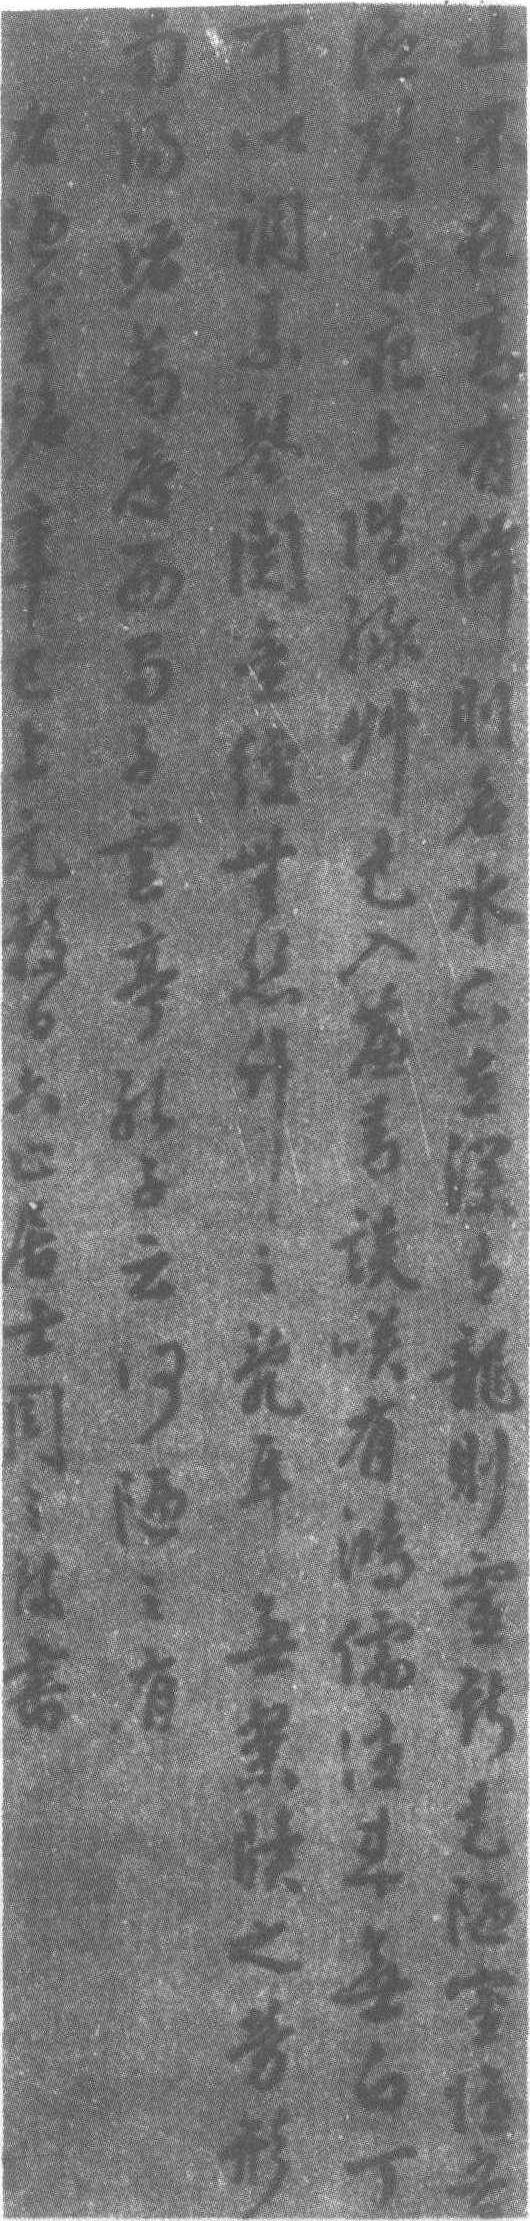 山不在高有僊則名水不在深有龍則靈斯是陋室惟吾
德馨苔痕上階綠艸色入簾青談咲有鴻儒往来無白丁
可以調素琴閱金經無絲竹之亂耳無案牘之勞形
南陽諸葛廬西蜀子雲亭孔子云何陋之有
上元 居士周之